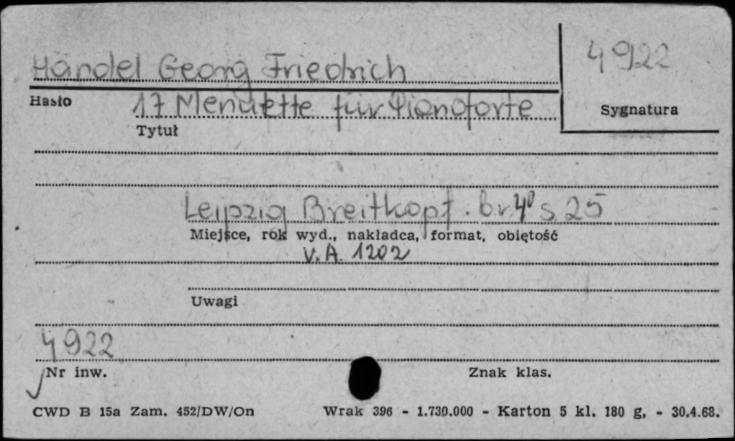 4922
Händel Georg Friedrich
Hasło
17 Menuette für Pianoforte
Sygnatura
Tytuł
Leipzig Breitkopf. br 4° s 25
Miejsce, rok wyd., nakładca, format, obiętość
V.A. 1202
Uwagi
4922
Nr inw.
Znak klas.
CWD B 15a Zam. 452/DW/On
Wrak 396 - 1.730.000 - Karton 5 kl. 180 g, - 30.4.68.